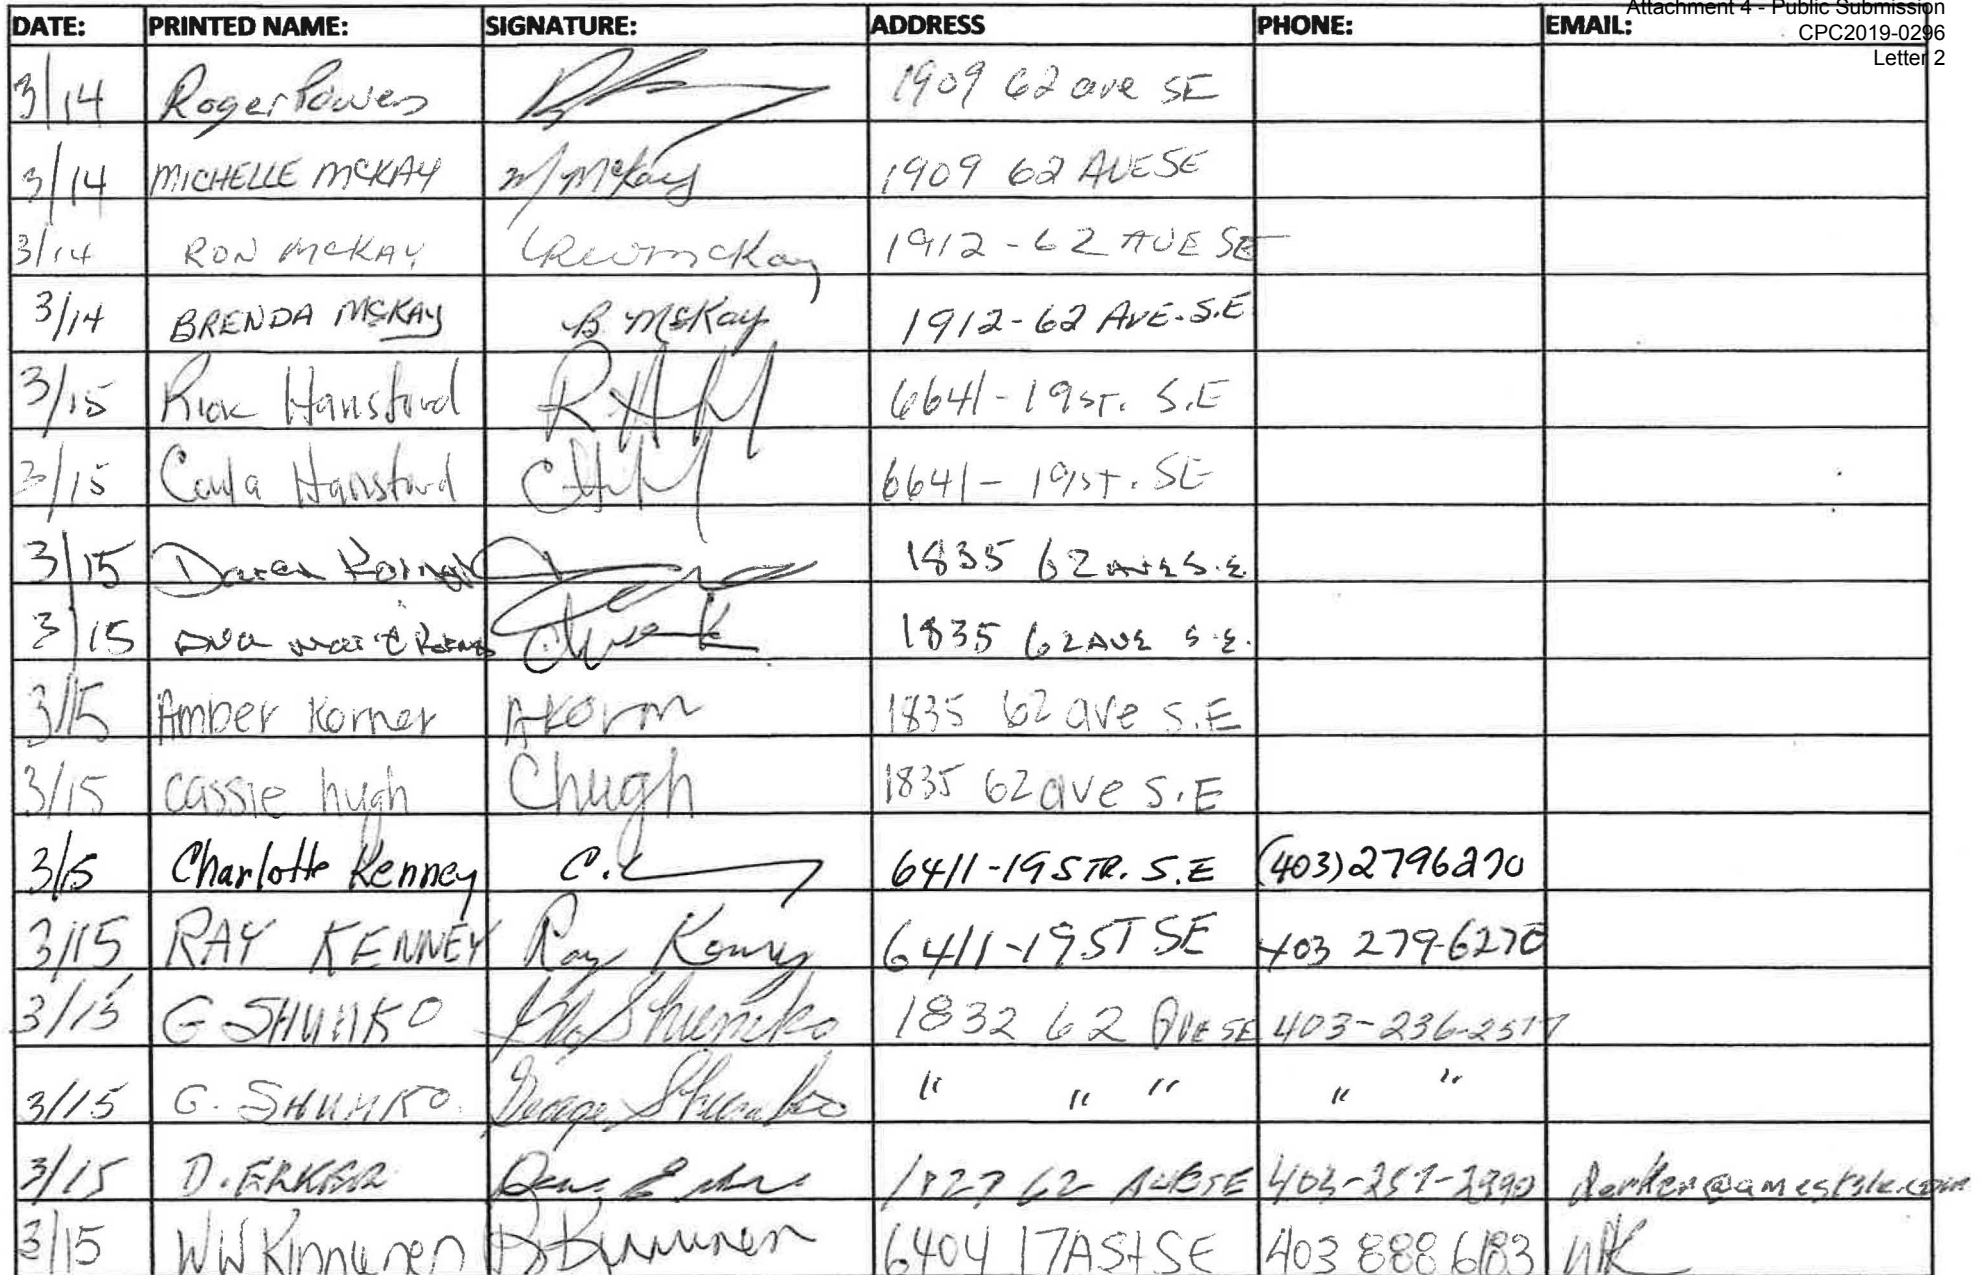 Attachment 4 - Public Submission
CPC2019-0296
Letter 2
DATE: PRINTED NAME: SIGNATURE: ADDRESS PHONE: EMAIL:
3/14 Roger 1909 62 ave SE
3/14 MICHELLE MCKAY M McKay 1909 62 AVE SE
3/14 RON MCKAY McKay 1912-62 AVE SE
3/14 BRENDA MCKAY B. McKay 1912-62 AVE. S.E
3/15 Rick Hansford 6641-19 ST. S.E
3/15 Carla Hansford 6641-19 ST. SE
3/15 1835 62 AVE S.E.
3/15 1835 62 AVE S.E.
3/15 Amber Korner AKorn 1835 62 ave S.E
3/15 cassie hugh Chugh 1835 62 ave S.E
3/15 Charlotte Kenney C. 6411-19 STR. S.E (403) 2796270
3/15 RAY KENNEY Ray Kenney 6411-19 ST SE 403 279-6270
3/15 G SHUMKO Shumko 1832 62 AVE SE 403-236-2577
3/15 G. SHUMKO. George Shumko " " " " "
3/15 D. ERKER 62 AVE SE
3/15 WW Kinnunen Kinnunen 6404 17A St SE 403 888 6183